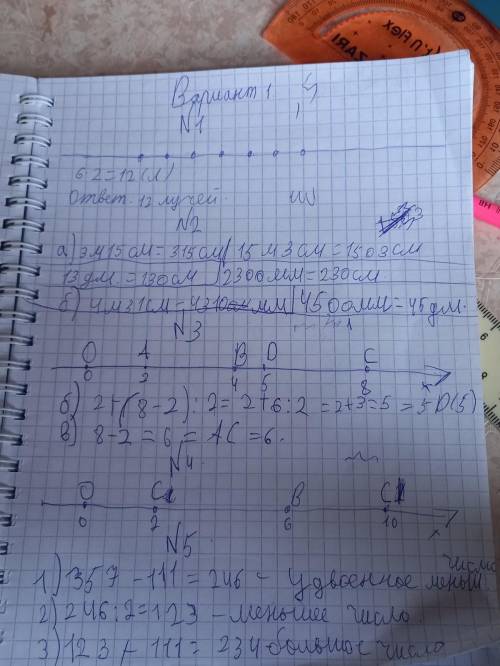 Вариант 1
N1
6·2=12(л)
Ответ: 12 лучей.
N2
а) 3м15см=315см 15м3см=1503см
13дм.=130см 2300мм=230см
б) 4м31см=4310мм 4500мм=45дм.
N3
O A B D C
0 2 4 5 8 x
б) 2+(8-2):2=2+6:2=2+3=5=5 D(5)
в) 8-2=6=AC=6.
N4
O C B C1
0 2 6 10 x
N5
число
1) 357-111=246 - удвоенное меньш.
2) 246:2=123 - меньшее число.
3) 123+111=234 большое число